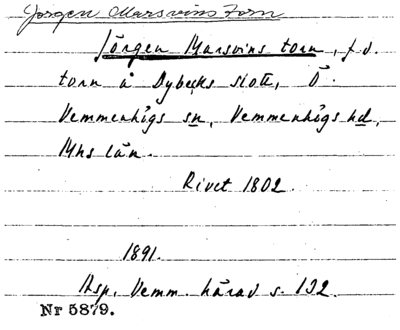 Jörgen Marsvins torn
Jörgen Marsvins torn, f.d.
torn å Dybecks slott, Ö.
Vemmenhögs sn, Vemmenhögs hd,
Mhs län.
Rivet 1802.
1891.
Asp, Vemm. härad s. 132.
Nr 5879.